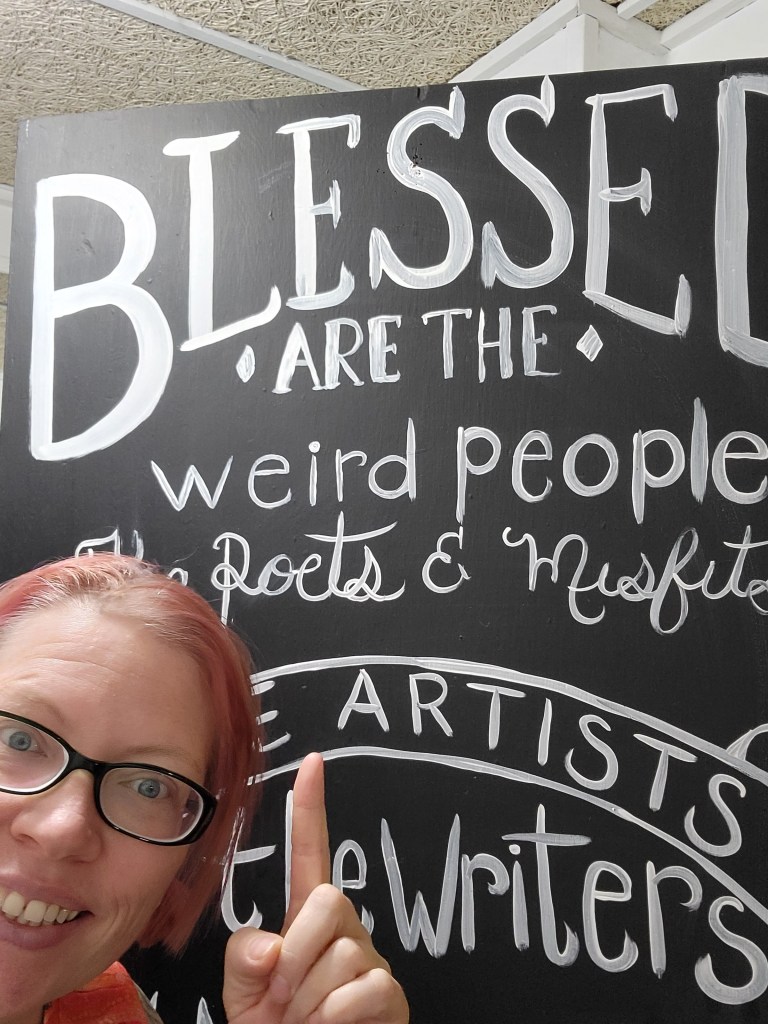 BLESSED
ARE THE
weird people
The Poets & Misfits
THE ARTISTS
the Writers